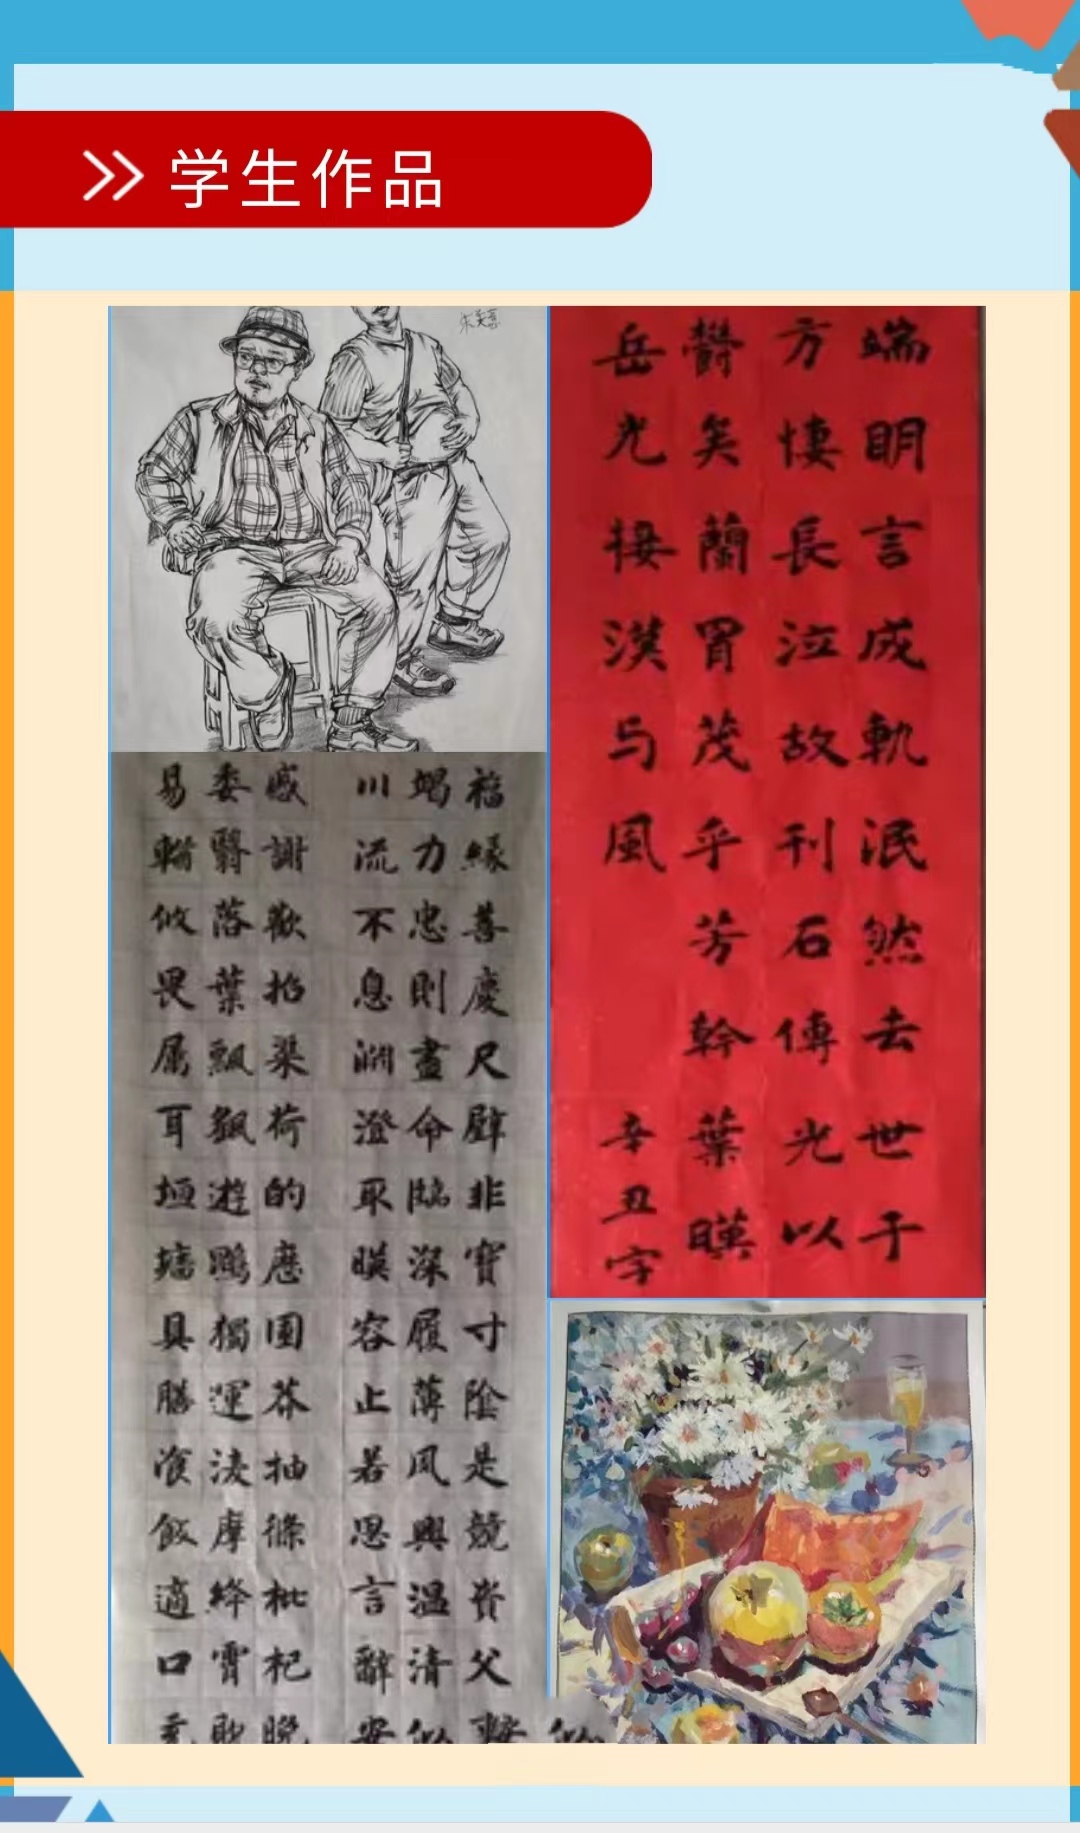 学生作品
端明言成軌泯然去世于
方悽長泣故刊石傳光以
欝矣蘭冑茂乎芳幹葉暎
岳光接漢与風
辛丑字
福緣善慶尺璧非寶寸陰是競資父
竭力忠則盡命臨深履薄夙興温清似
川流不息淵澄取暎容止若思言辭安
感謝歡招渠荷的歷園莽抽條枇杷晚
委翳落葉飄飖遊鵾獨運淩摩絳霄耽
易輶攸畏属耳垣墻具膳飡飯適口充